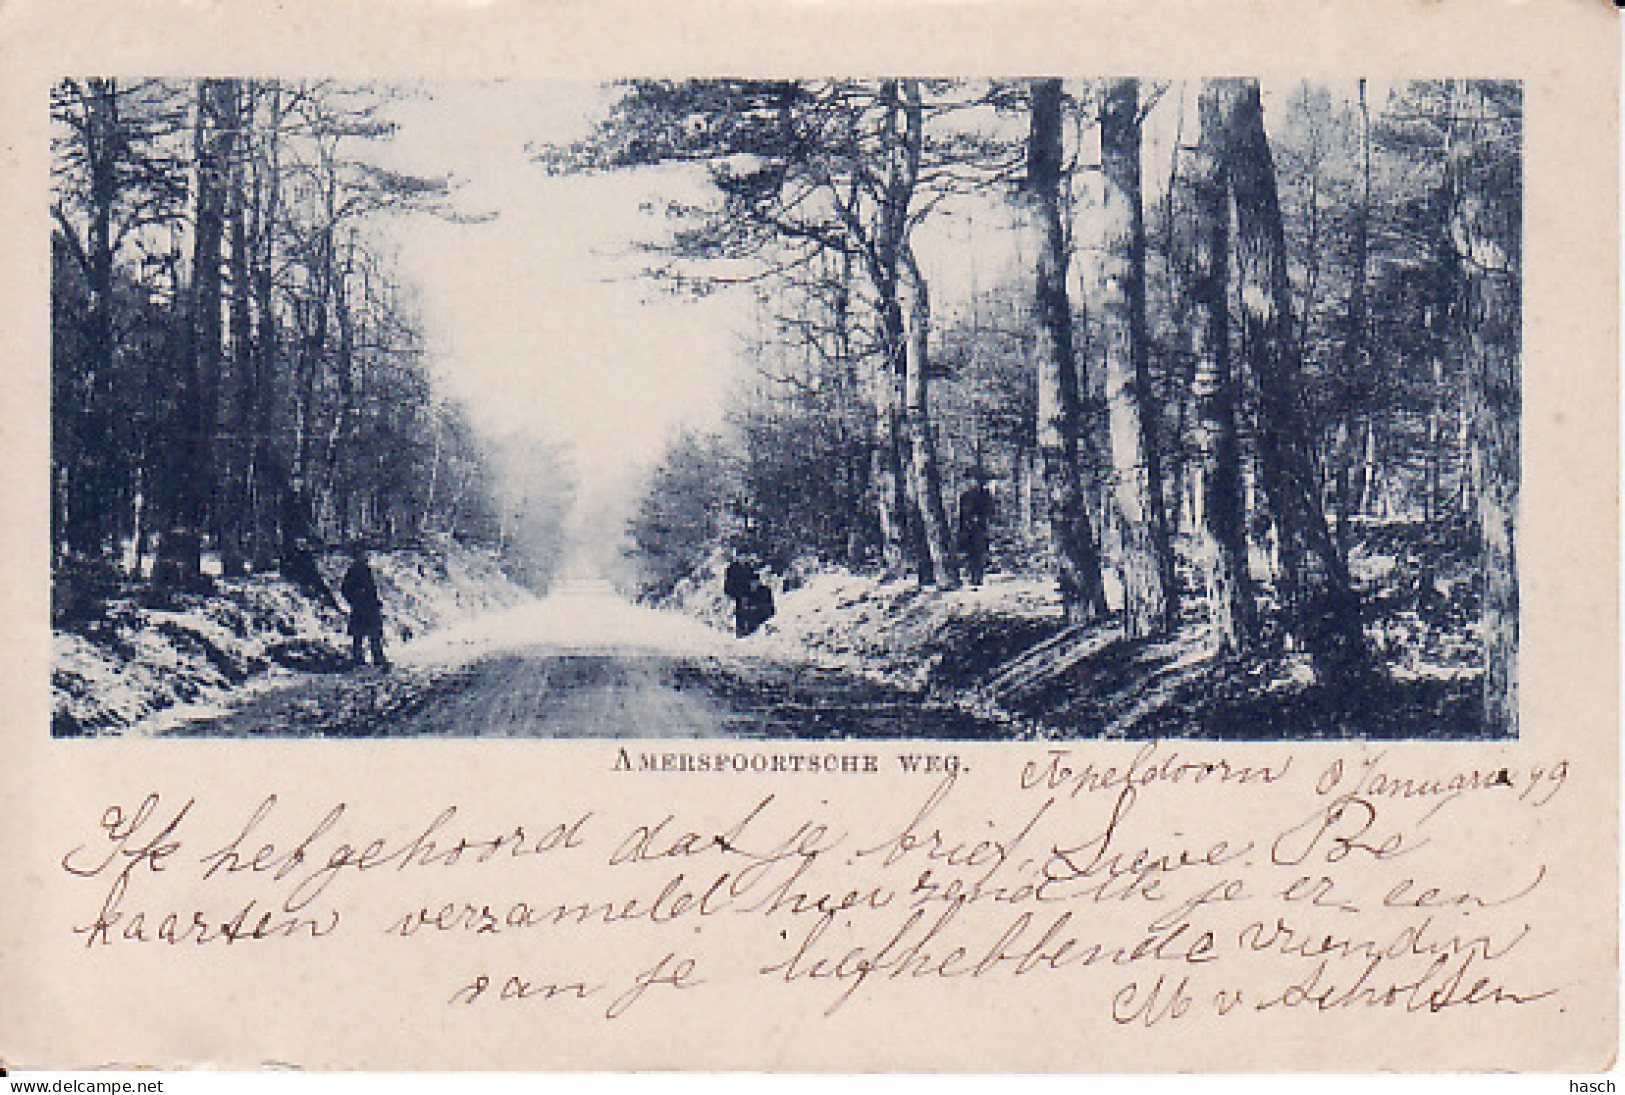 AMERSFOORTSCHE WEG.
Apeldoorn 8 Januarie 99
Ik heb gehoord dat je brief, Lieve Bé
kaarten verzameld hier zend ik je er een
van je liefhebbende vriendin
M v Scholten.
www.delcampe.net
hasch